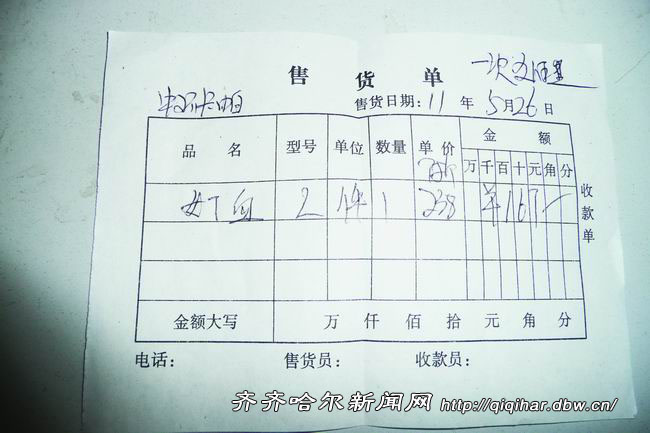 售货单
售货日期：11年5月26日
品名 型号 单位 数量 单价 金额
万 千 百 十 元 角 分
女T血 2 件 1 238 167
收款单
金额大写 万 仟 佰 拾 元 角 分
电话： 售货员： 收款员：
齐齐哈尔新闻网 http://qiqihar.dbw.cn/